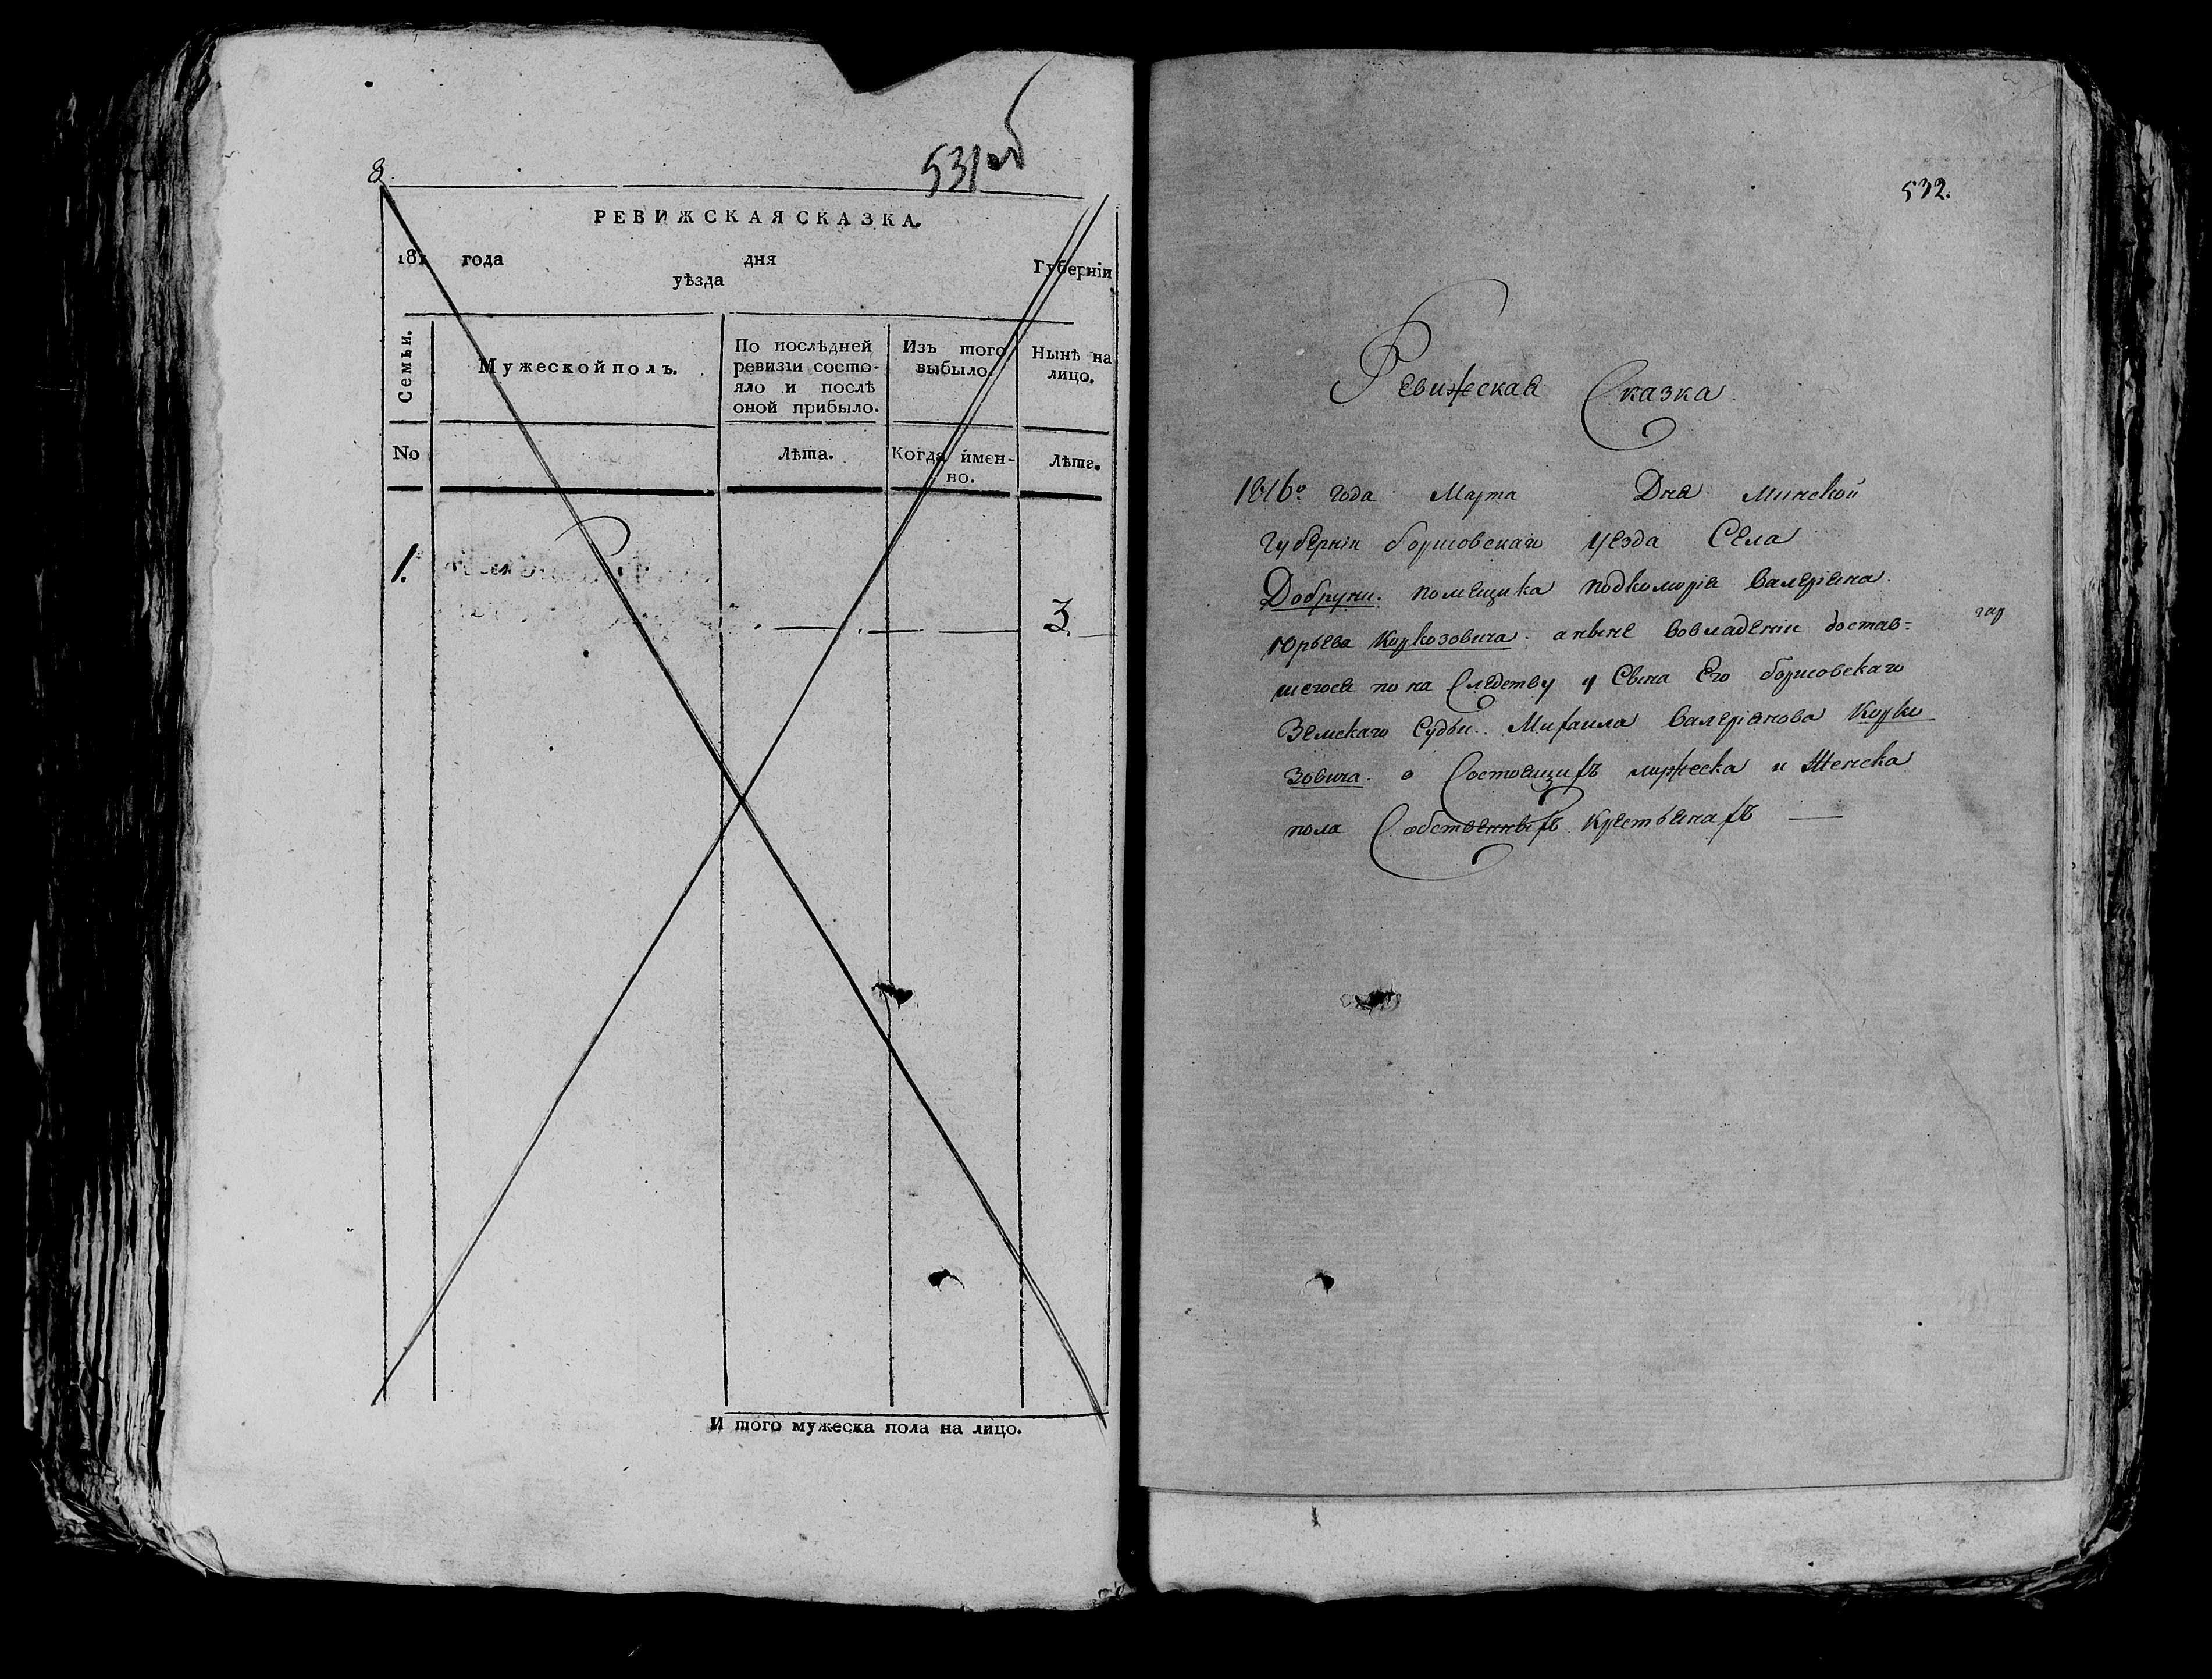 8.
531об
РЕВИЖСКАЯ СКАЗКА.
181 года дня Губернїи
уѣзда
Семьи.
Мужеской полъ.
По послѣдней ревизїи состо-
яло и послѣ
оной прибыло.
Изъ того
выбыло.
Нынѣ на
лицо.
No
Лѣта.
Когда имен-
но.
Лѣта.
1.
3.
И того мужеска пола на лицо.
532.
Ревижеская Сказка.
1816го года Марта Дня Минской
Губерніи борисовскаго уезда Села
Добруни. помещика подкоморія Валеріяна
Юрьева Коркозовича. а ныне вовладеніи достав-
шегося по на Следству у Сына Его борисовскаго
Земскаго Судьи.. Михаила Валеріянова Корко
зовича. о Состоящихъ мужеска и Женска
пола Собственныхъ Крестьянахъ